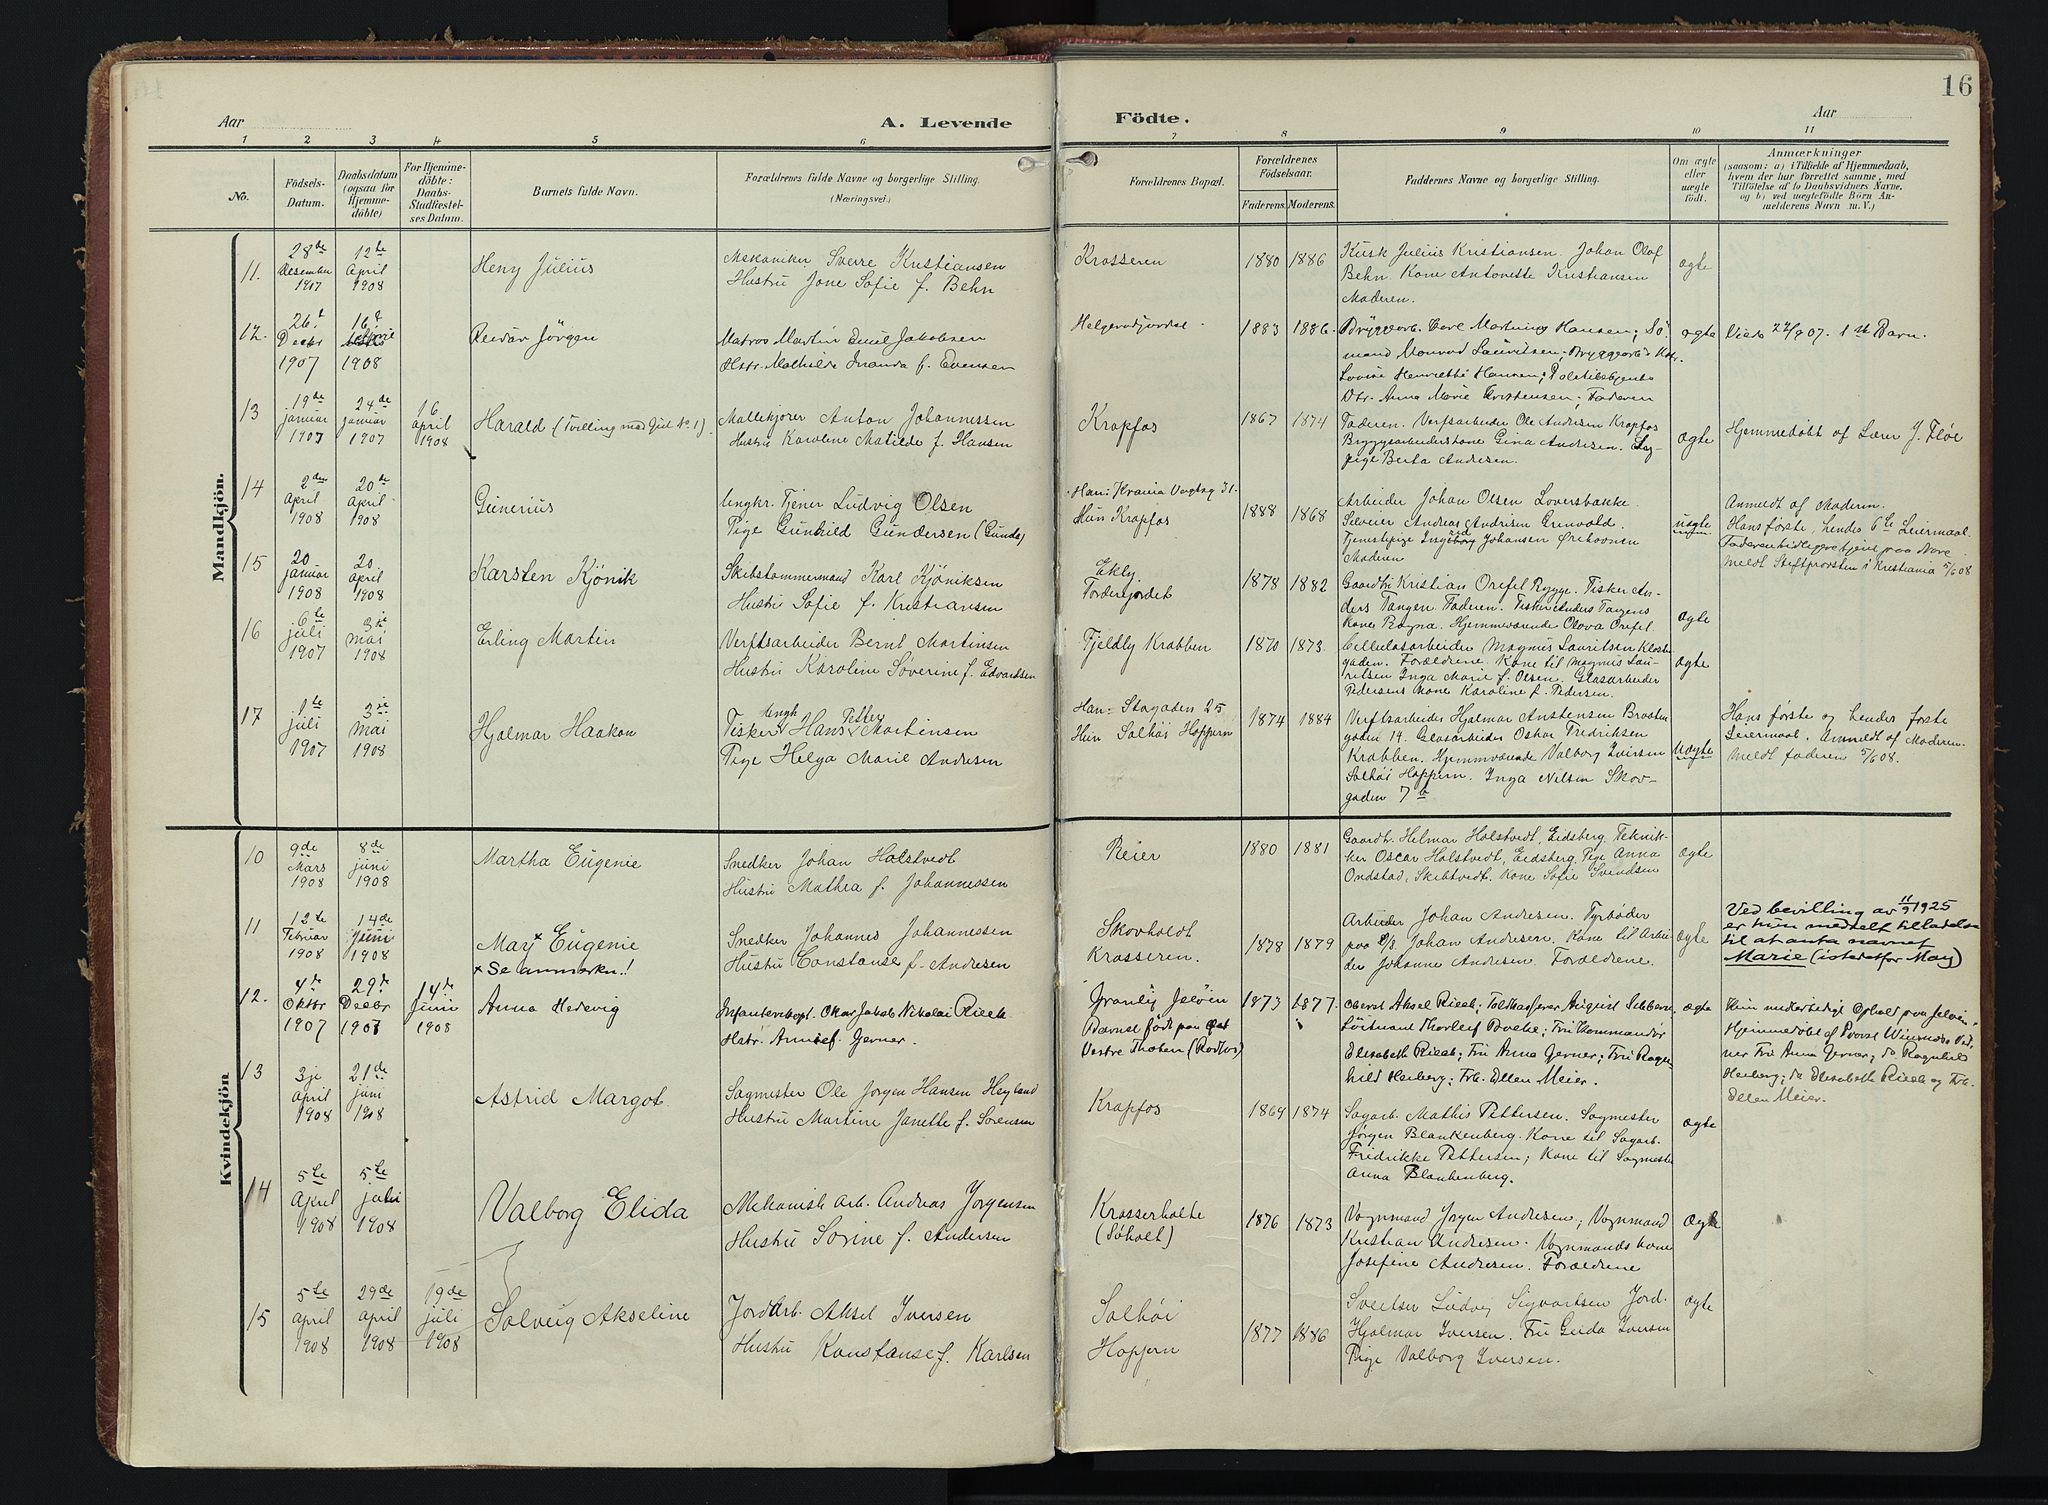 16
Aar
A. Levende
Fødte.
Aar
1 2 3 4 5 6 7 8 9 10 11
No.
Fødsels-
Datum.
Daabsdatum
(ogsaa for
Hjemme-
døbte)
For Hjemme-
døbte:
Daabs-
Stadfæstel-
ses Datum.
Barnets fulde Navn.
Forældrenes fulde Navne og borgerlige Stilling.
(Næringsvei.)
Forældrenes Bopæl.
Forældrenes
Fødselsaar.
Faderens. Moderens.
Faddernes Navne og borgerlige Stilling.
Om ægte
eller
uægte
født.
Anmærkninger
(saasom: a) i Tilfælde af Hjemmedaab,
hvem der har forrettet samme, med
Tilføielse af to Daabsvidners Navne,
og b) ved uægtefødte Børn An-
melderens Navn m. V.)
Mandkjön.
11.
28de
Desember
1907
12te
April
1908
Heny Julius
Mekaniker Sverre Kristiansen
Hustru Jone Sofie f. Behn
Krosseren
1880 1886
Kusk Julius Kristiansen. Johan Olaf
Behn. Kone Antonette Kristiansen
Moderen.
ægte
12.
26.
Decbr
1907
16
April
1908
Reidar Jörgen
Matros Martin Emil Jakobsen
Hstr. Mathilde Inanda f. Evensen
1883 1886.
Bryggearb. Carl Martinius Hansen; Sö
mand Monrad Lauritsen; Bryggearb's Kstr.
Lovise Henriette Hansen; Politibetjents
Dtr. Anna Marie Kristensen; Faderen
ægte
Viede 22/9 07. 1ste Barn.
13
19de
januar
1907
24de
januar
1907
16
april
1908
Harald (Tvilling med Gut No 1).
Anton Johannessen
Hustru Karoline Matilde f. Hansen
Krapfos
1867 1874
Faderen. Verfsarbeider Ole Andersen Krapfos
Bryggearbeiderskone Gina Andersen. Sy-
pige Berta Andersen.
ægte
Hjemmedöbt af Lærer J. Flöe
14
2den
April
1908
20de
April
1908
Gunerius
Ungkr. Tjener Ludvig Olsen
Pige Gunhild Gundersen (Gunda)
Han: Krania Vogtsg 31.
Hun Krapfos
1888 1868
Arbeider Johan Olsen Loversbakke
Andreas Andersen Grinvold.
Tjenestepige Johansen
Moderen
uægte
Anmeldt af Moderen.
Hans förste, hendes 6te Leiermaal.
Meldt Stiftprovsten i Kristiania 5/6 08
15
20
januar
1908
20
april
1908
Karsten Kjönik
Skibstømmermand Karl Kjöniksen
Hustru Sofie f. Kristiansen
Ekly
1878 1882
Gaardbr Kristian Orefel Rygge. Fisker An-
ders Tangen Faderen. Fisker Anders Tangens
Kone Ragna. Hjemmeværende Olava Orefel.
ægte
16
6te
juli
1907
3je
mai
1908
Erling Martin
Verftsarbeider Bernt Martinsen
Hustru Karoline Söverine f. Edvardsen
Fjeldly Krabben
1870 1873.
Cellulosarbeider Magnus Lauritsen Kloster
gaden. Forældrene. Kone til Magnus Lau-
ritsen Inga Marie f. Olsen. Glasarbeider
Pedersens kone Karoline f. Pedersen.
ægte
17
1ste
juli
1907
3je
mai
1908
Hjalmar Haakon
Ungk Petter
Fisker Hans Martinsen
Pige Helga Marie Andresen
Han: Stogaden 25
Hun Solhöi Hoppern
1874 1884
Verftsarbeider Hjalmar Anstensen Braaten
gaden 14. Glasarbeider Oskar Fredriksen
Krabben. Hjemmeværende Valborg Iversen
Solhöi Hoppern. Inga Nilsen Skov-
gaden 7b
uægte
Hans første og hendes förste
Leiermaal. Anmeldt af Moderen.
Meldt faderen 5/6 08.
Kvindekjön
10
9de
Mars
1908
8de
juni
1908
Martha Eugenie
Snedker Johan Holstvedt
Hustru Mathea f. Johannessen
Reier
1880 1881
Gaardb. Helmar Holstvedt, Eidsberg. Teknik-
ker Oscar Holstvedt, Eidsberg. Pige Anna
Ondstad, Skibtvedt. Kone Sofie Svendsen
ægte
11
12te
Februar
1908
14de
Juni
1908
Mary× Eugenie
× Se anmerkn.!
Snedker Johannes Johannessen
Hustru Constanse f. Andresen
Skovholdt
Krosseren.
1878 1879
Arbeider Johan Andresen. Fyrböder
paa D/S. Johan Andresen. Kone til Arbei
der Johanne Andresen. Forældrene.
ægte
Ved bevilling av 11/9 1925
er hun meddelt tilladelse
til at anta navnet
Marie (istedetfor Mary)
12.
4de
Oktbr
1907
29d
Decbr
1907
14de
Juni
1908
Anna Hedevig
Infanterikapt. Okar Jakob Nikolai Rieck
Hstr. Annie f. Gerner.
Granly Jelöen
Barnet født paa
Vestre Thoten (Rodfos)
1873 1877.
Oberst Aksel Rieck; Toldkasserer August Sibbern
Löitnant Thorleif Boeke; Fru Kommandör
Elisabeth Rieck; Fru Anna Gerner; Fru Ragn-
hild Heiberg; Frk. Ellen Meier.
ægte
Kun midlertidigt Ophold paa Jelöen.
Hjemmedöbt af Provst
ner Fru Anna Gerner; do Ragnhild
Heiberg; do Elisabeth Rieck og Frk.
Ellen Meier.
13
3je
april
1908
21de
juni
1908
Astrid Margot
Sagmester Ole Jörgen Hansen Heyland
Hustru Martine Janette f. Sörensen
Krapfos
1869 1874
Sagarb. Mathis Pettersen. Sagmester
Jörgen Blankenberg. Kone til Sagarb.
Fredrikke Pettersen; Kone til Sagmester
Anna Blankenberg.
ægte
14
5te
april
1908
5te
juli
1908
Valborg Elida
Mekanisk arb. Andreas Jörgensen
Hustru Sorine f. Andersen
Krosserholte
(Söholt)
1876 1873
Vognmand Jörgen Andresen; Vognmand
Kristian Andresen. Vognmands kone
Josefine Andresen. Forældrene
ægte
15
5te
april
1908
29de
april
1908
19de
juli
1908
Solveig Akseline
Jordarb. Aksel Iversen
Hustru Konstanse f. Karlsen
Solhöi
Hoppern
1877 1886
Sveitser Ludvig Sigvartsen Jord.
Hjalmar Iversen. Fru Gerda Iversen
Pige Valborg Iversen.
ægte